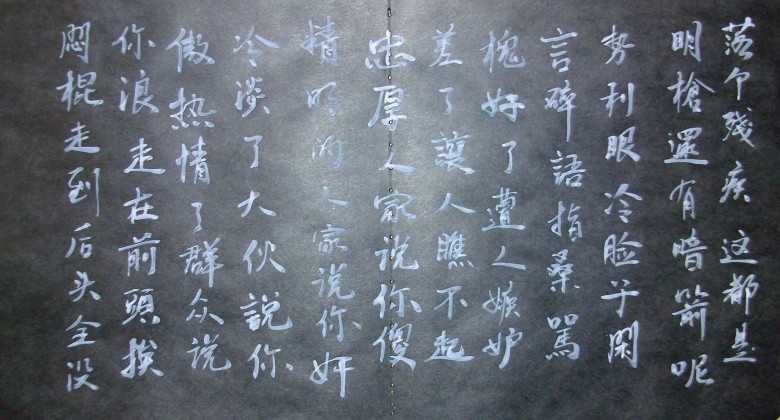 落个残疾这都是
明槍還有暗箭呢
势利眼冷脸子闲
言碎語指桑罵
槐好了遭人嫉妒
差了讓人瞧不起
忠厚人家说你傻
精明的人家说你奸
冷淡了大伙説你
傲热情了群众说
你浪走在前頭挨
悶棍走到后头全没